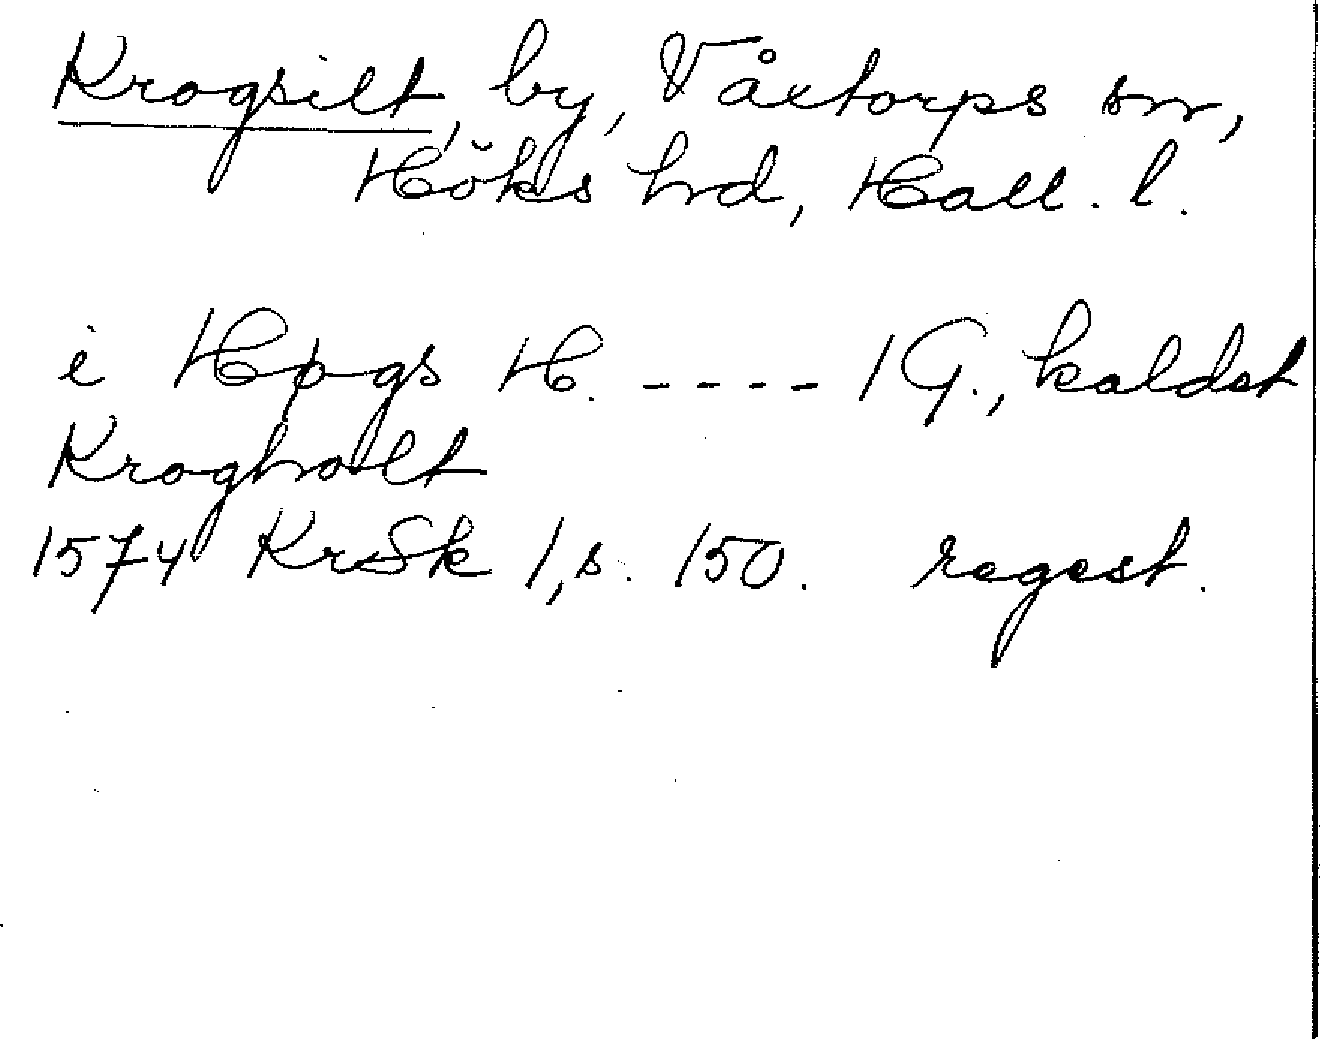 Krogsilt, by, Våxtorps sn,
Höks hrd, Hall. l.
i Høgs H. ---- 1 G., kaldet
Krogholt
1574 KrSk 1, s. 150. regest.